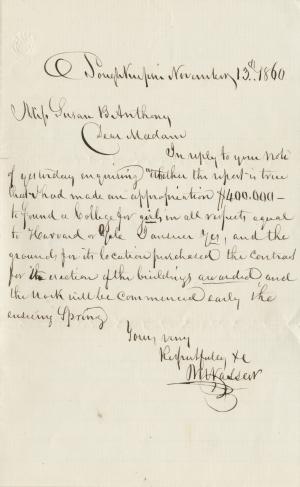 Poughkeepsie November 13th 1860
Miss Susan B Anthony
Dear Madam
In reply to your note
of yesterday enquiring whether the report is true
that I had made an appropriation $400.000 —
to found a College for girls in all respects equal
to Harvard or Yale I answer Yes, and the
grounds for its location purchased the contract
for the erection of the buildings awarded, and
the work will be commenced early the
ensuing Spring
Yours very
Respectfully &c
M Vassar